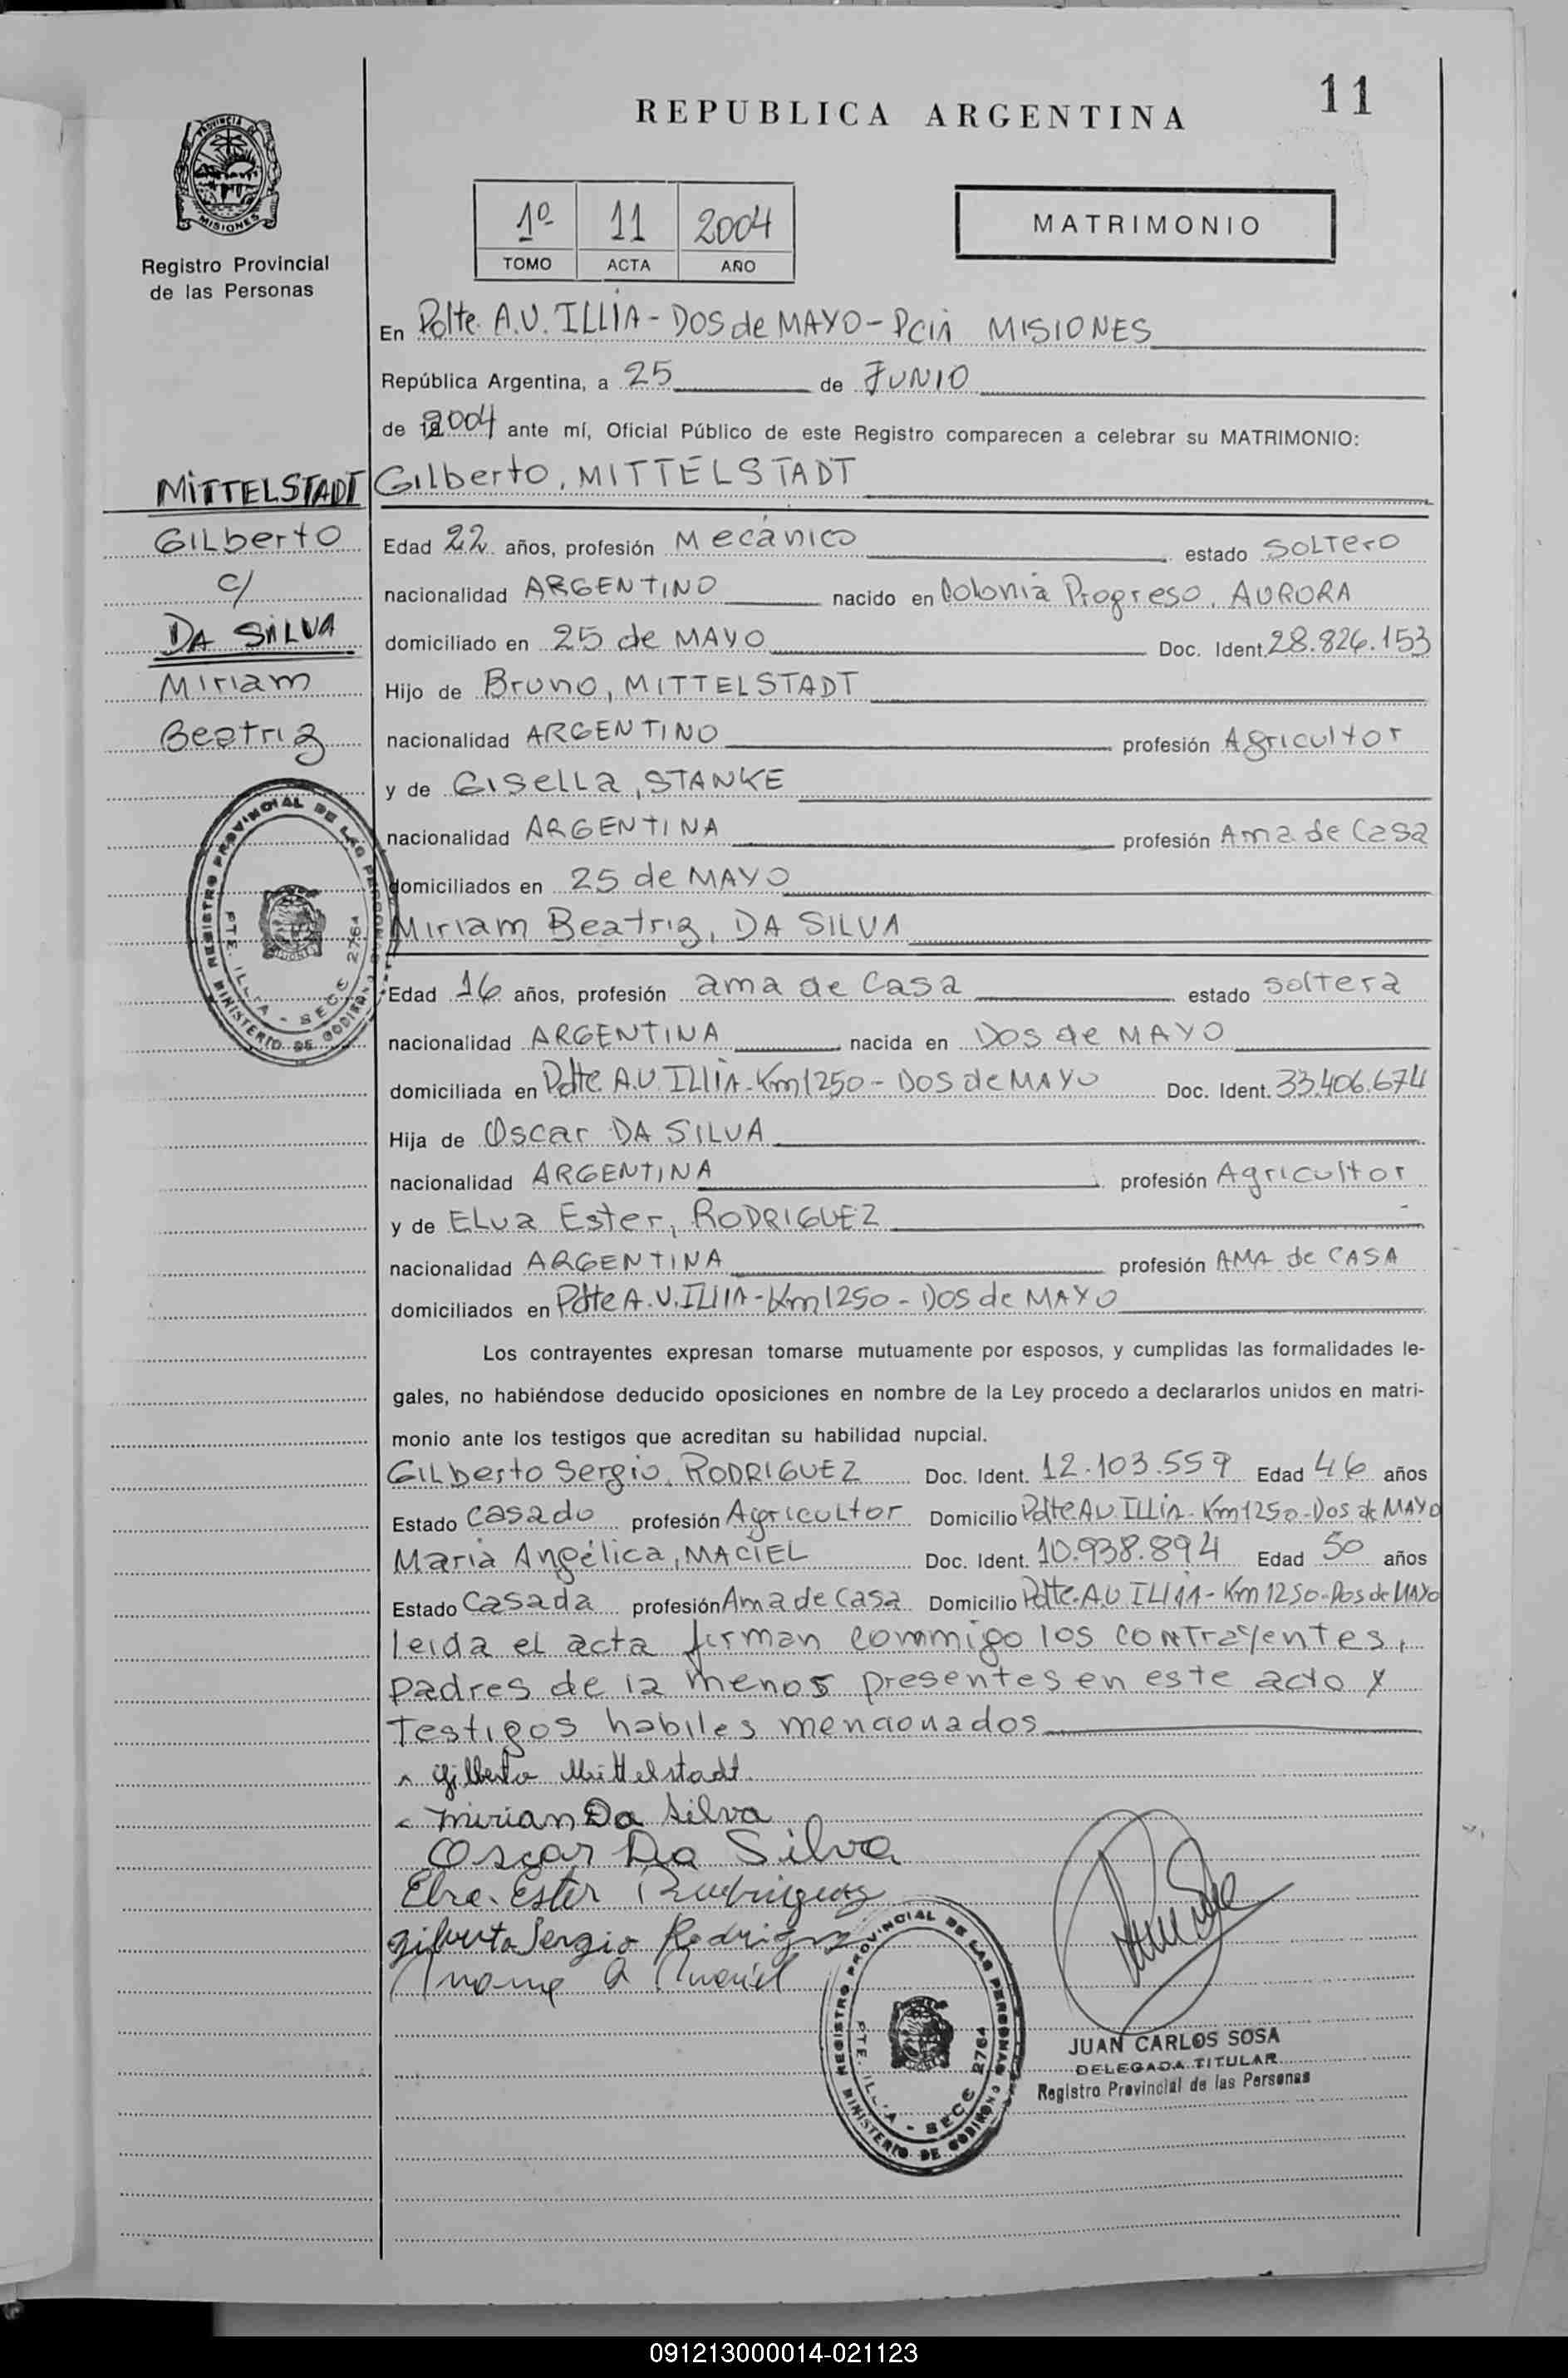 11
REPUBLICA ARGENTINA
PROVINCIA DE
MISIONES
Registro Provincial
de las Personas
1º 11 2004
TOMO ACTA AÑO
MATRIMONIO
En Pdte. A.U. ILLIA - DOS de MAYO - PCIA MISIONES
República Argentina, a 25 de JUNIO
de 2004 ante mí, Oficial Público de este Registro comparecen a celebrar su MATRIMONIO:
MITTELSTADT
GILberto
c/
DA SILVA
Miriam
Beatriz
Gilberto, MITTELSTADT
Edad 22 años, profesión Mecánico estado SOLTERO
nacionalidad ARGENTINO nacido en Colonia Progreso, AURORA
domiciliado en 25 de MAYO Doc. Ident. 28.826.153
Hijo de Bruno, MITTELSTADT
nacionalidad ARGENTINO profesión Agricultor
y de GISELLA, STANKE
nacionalidad ARGENTINA profesión Ama de Casa
domiciliados en 25 de MAYO
Miriam Beatriz, DA SILVA
Edad 16 años, profesión ama de Casa estado soltera
nacionalidad ARGENTINA nacida en DOS de MAYO
domiciliada en Pdte A.U. ILLIA - Km 1250 - DOS de MAYO Doc. Ident. 33.406.674
Hija de Oscar DA SILVA
nacionalidad ARGENTINA profesión Agricultor
y de ELva Ester, RODRIGUEZ
nacionalidad ARGENTINA profesión AMA de CASA
domiciliados en Pdte A.U. ILLIA - Km 1250 - DOS de MAYO
Los contrayentes expresan tomarse mutuamente por esposos, y cumplidas las formalidades le-
gales, no habiéndose deducido oposiciones en nombre de la Ley procedo a declararlos unidos en matri-
monio ante los testigos que acreditan su habilidad nupcial.
GILberto Sergio, RODRIGUEZ Doc. Ident. 12.103.559 Edad 46 años
Estado Casado profesión Agricultor Domicilio Pdte A.U. ILLIA - Km 1250 - Dos de MAYO
Maria Angélica, MACIEL Doc. Ident. 10.938.894 Edad 50 años
Estado Casada profesión Ama de Casa Domicilio Pdte. A.U ILLIA - Km 1250 - Dos de MAYO
leida el acta firman commigo los contrayentes,
padres de la menor presentes en este acto y
Testigos habiles mencionados
Gilberto Mittelstadt
Mirian Da Silva
Oscar Da Silva
Elva Ester Rodriguez
Gilberto Sergio Rodriguez
A Maciel
REGISTRO PROVINCIAL DE LAS PERSONAS
MINISTERIO DE GOBIERNO
PTE. ILLIA - SECC 2764
REGISTRO PROVINCIAL DE LAS PERSONAS
MINISTERIO DE GOBIERNO
PTE. ILLIA - SECC 2764
JUAN CARLOS SOSA
DELEGADA TITULAR
Registro Provincial de las Personas
091213000014-021123